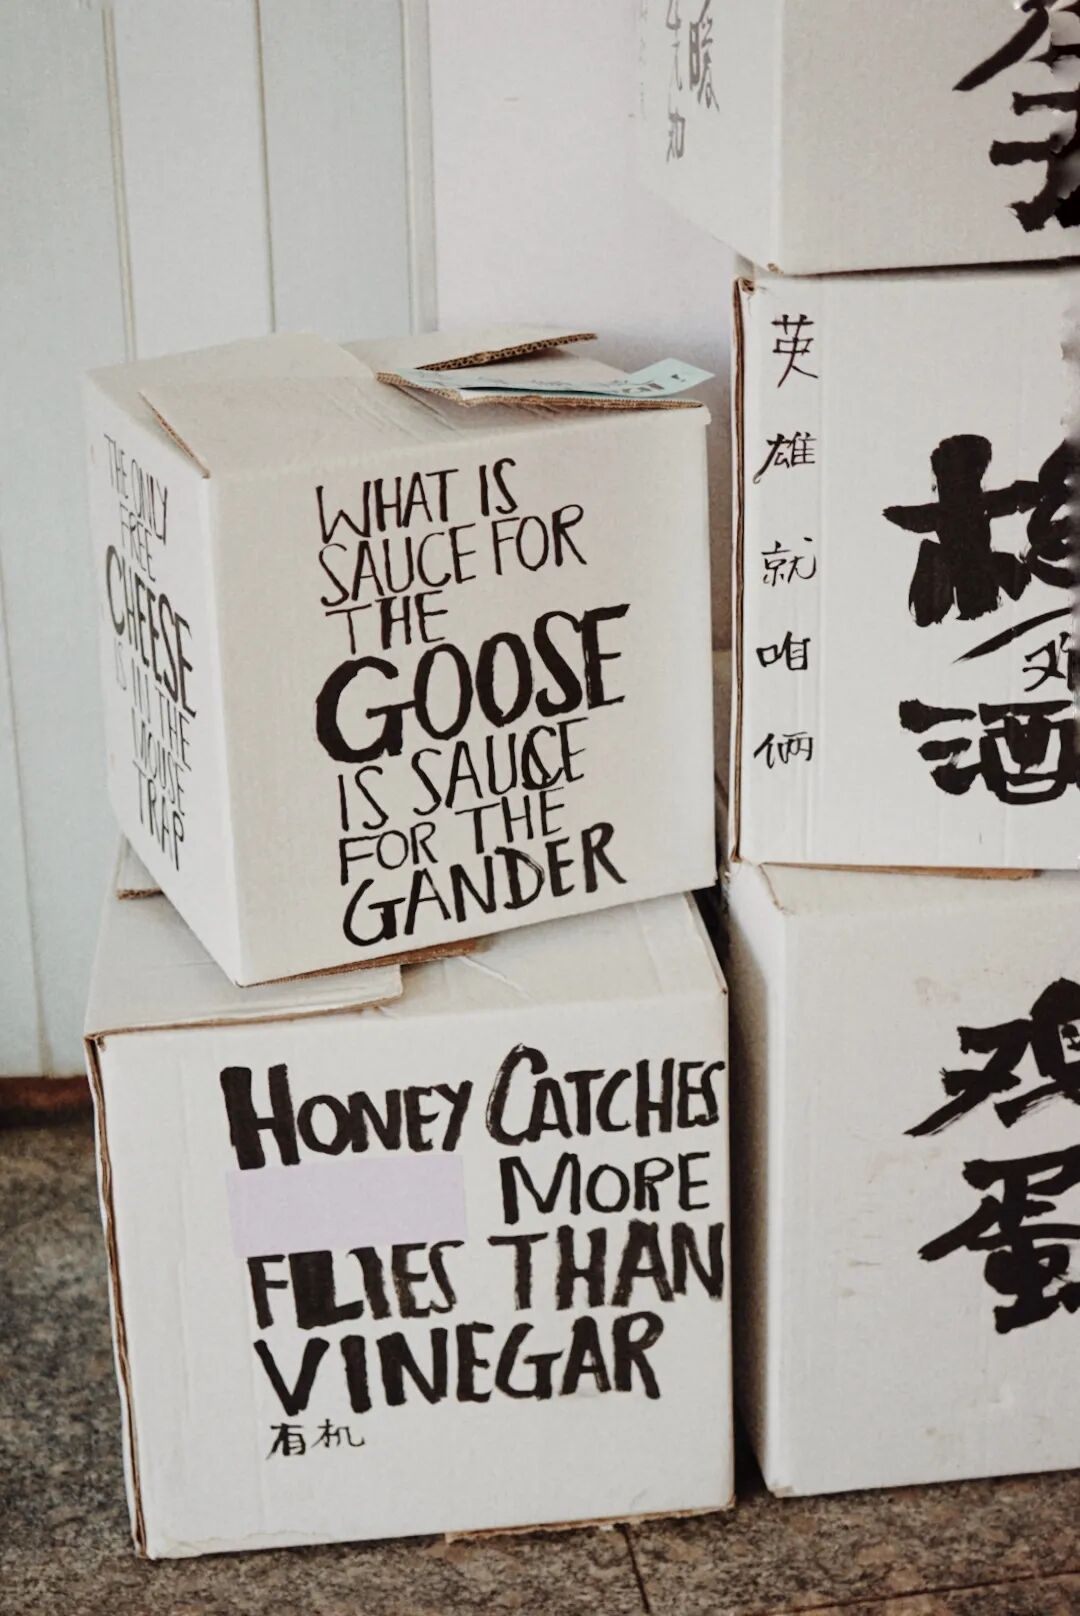 THE ONLY
FREE
CHEESE
IS IN THE
MOUSE
TRAP
WHAT IS
SAUCE FOR
THE
GOOSE
IS SAUCE
FOR THE
GANDER
HONEY CATCHES
MORE
FLIES THAN
VINEGAR
有机
暖
先知
英雄就咱俩
酒
鸡
蛋